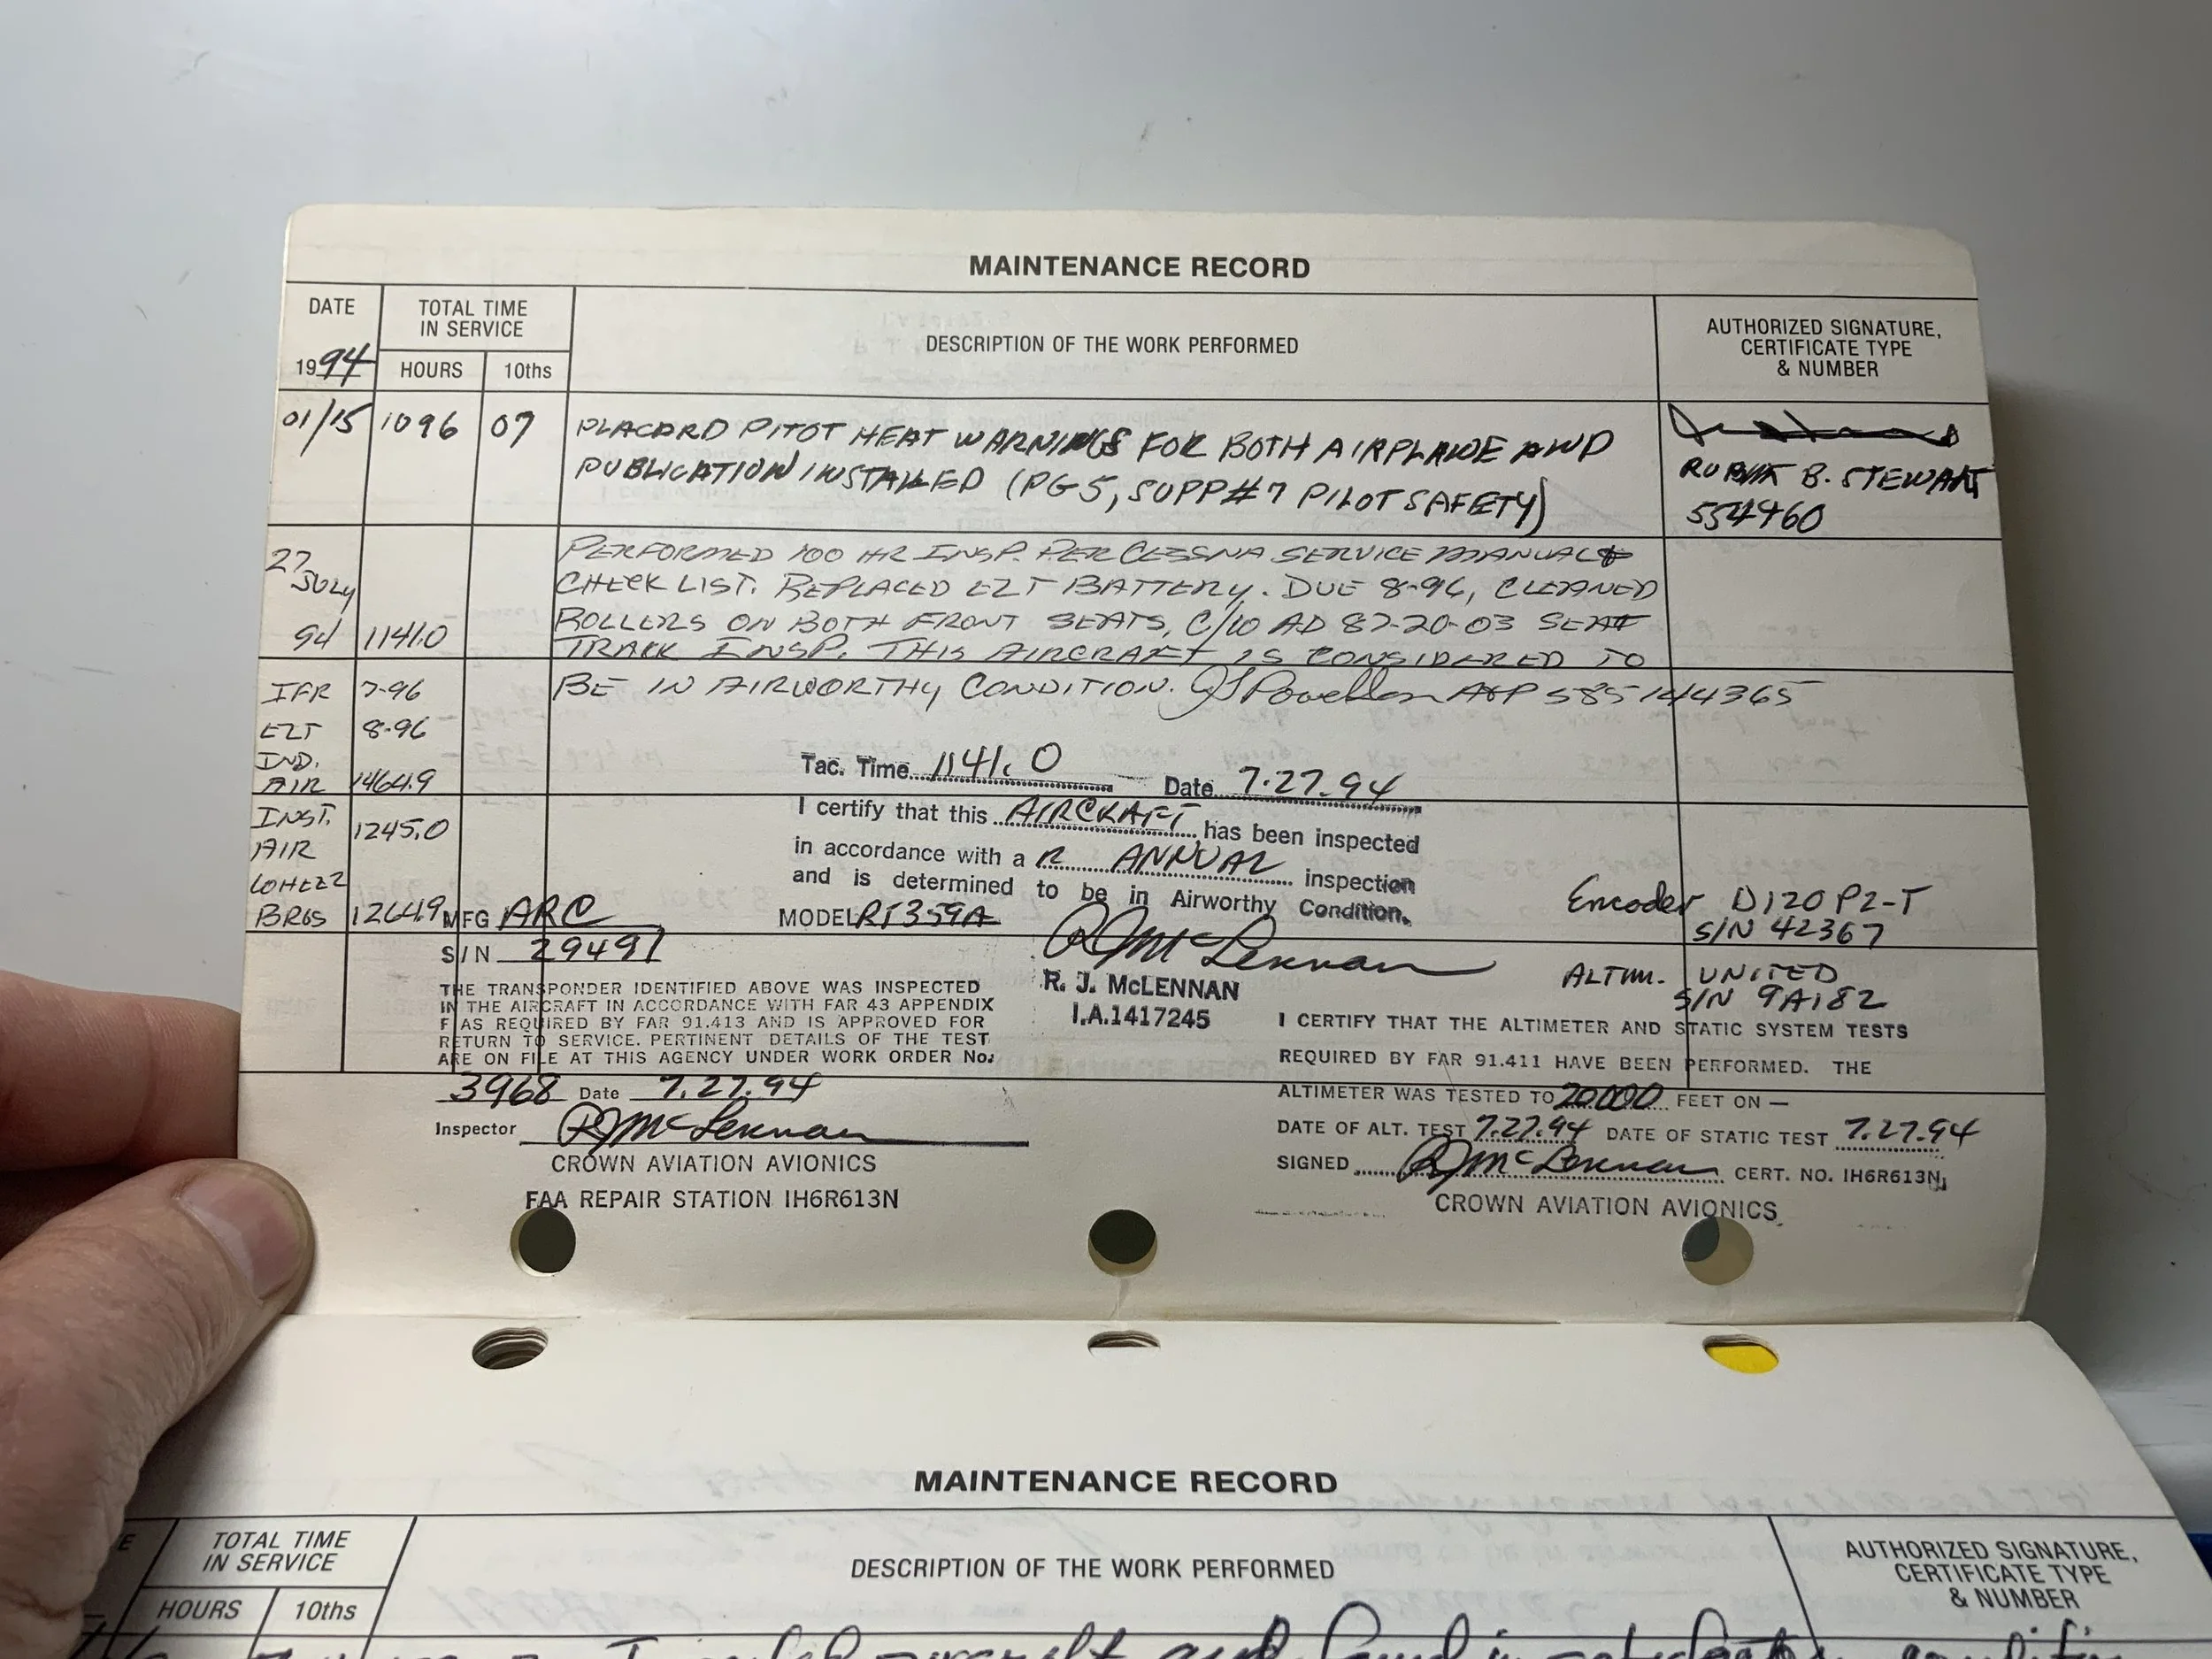 MAINTENANCE RECORD
DATE
1994
TOTAL TIME
IN SERVICE
HOURS
10ths
DESCRIPTION OF THE WORK PERFORMED
AUTHORIZED SIGNATURE,
CERTIFICATE TYPE
& NUMBER
01/15 1096 07
PLACARD PITOT HEAT WARNINGS FOR BOTH AIRPLANE AND
PUBLICATION INSTALLED (PG 5, SUPP #7 PILOT SAFETY)
B. STEWART
554460
27
JULY
94 1141.0
PERFORMED 100 HR INSP. PER CESSNA SERVICE MANUAL &
CHECK LIST. REPLACED ELT BATTERY. DUE 8-96, CLEANED
ROLLERS ON BOTH FRONT SEATS, C/W AD 87-20-03 SEAT
TRACK INSP. THIS AIRCRAFT IS CONSIDERED TO
BE IN AIRWORTHY CONDITION. A&P 585144365
IFR 7-96
ELT 8-96
IND.
AIR 1464.9
INST. 1245.0
AIR
WHEEL
BRGS 1264.9
Tac. Time 1141.0 Date 7.27.94
I certify that this AIRCRAFT has been inspected
in accordance with a ANNUAL inspection
and is determined to be in Airworthy Condition.
RJ McLennan
R. J. McLENNAN
I.A.1417245
MFG ARC MODEL RT359A
S/N 29491
THE TRANSPONDER IDENTIFIED ABOVE WAS INSPECTED
IN THE AIRCRAFT IN ACCORDANCE WITH FAR 43 APPENDIX
F AS REQUIRED BY FAR 91.413 AND IS APPROVED FOR
RETURN TO SERVICE. PERTINENT DETAILS OF THE TEST
ARE ON FILE AT THIS AGENCY UNDER WORK ORDER No.
3968 Date 7.27.94
Inspector RJ McLennan
CROWN AVIATION AVIONICS
FAA REPAIR STATION IH6R613N
Encoder D120 P2-T
S/N 42367
ALTIM. UNITED
S/N 9A182
I CERTIFY THAT THE ALTIMETER AND STATIC SYSTEM TESTS
REQUIRED BY FAR 91.411 HAVE BEEN PERFORMED. THE
ALTIMETER WAS TESTED TO 20000 FEET ON —
DATE OF ALT. TEST 7.27.94 DATE OF STATIC TEST 7.27.94
SIGNED RJ McLennan CERT. NO. IH6R613N
CROWN AVIATION AVIONICS
MAINTENANCE RECORD
E
TOTAL TIME
IN SERVICE
HOURS
10ths
DESCRIPTION OF THE WORK PERFORMED
AUTHORIZED SIGNATURE,
CERTIFICATE TYPE
& NUMBER